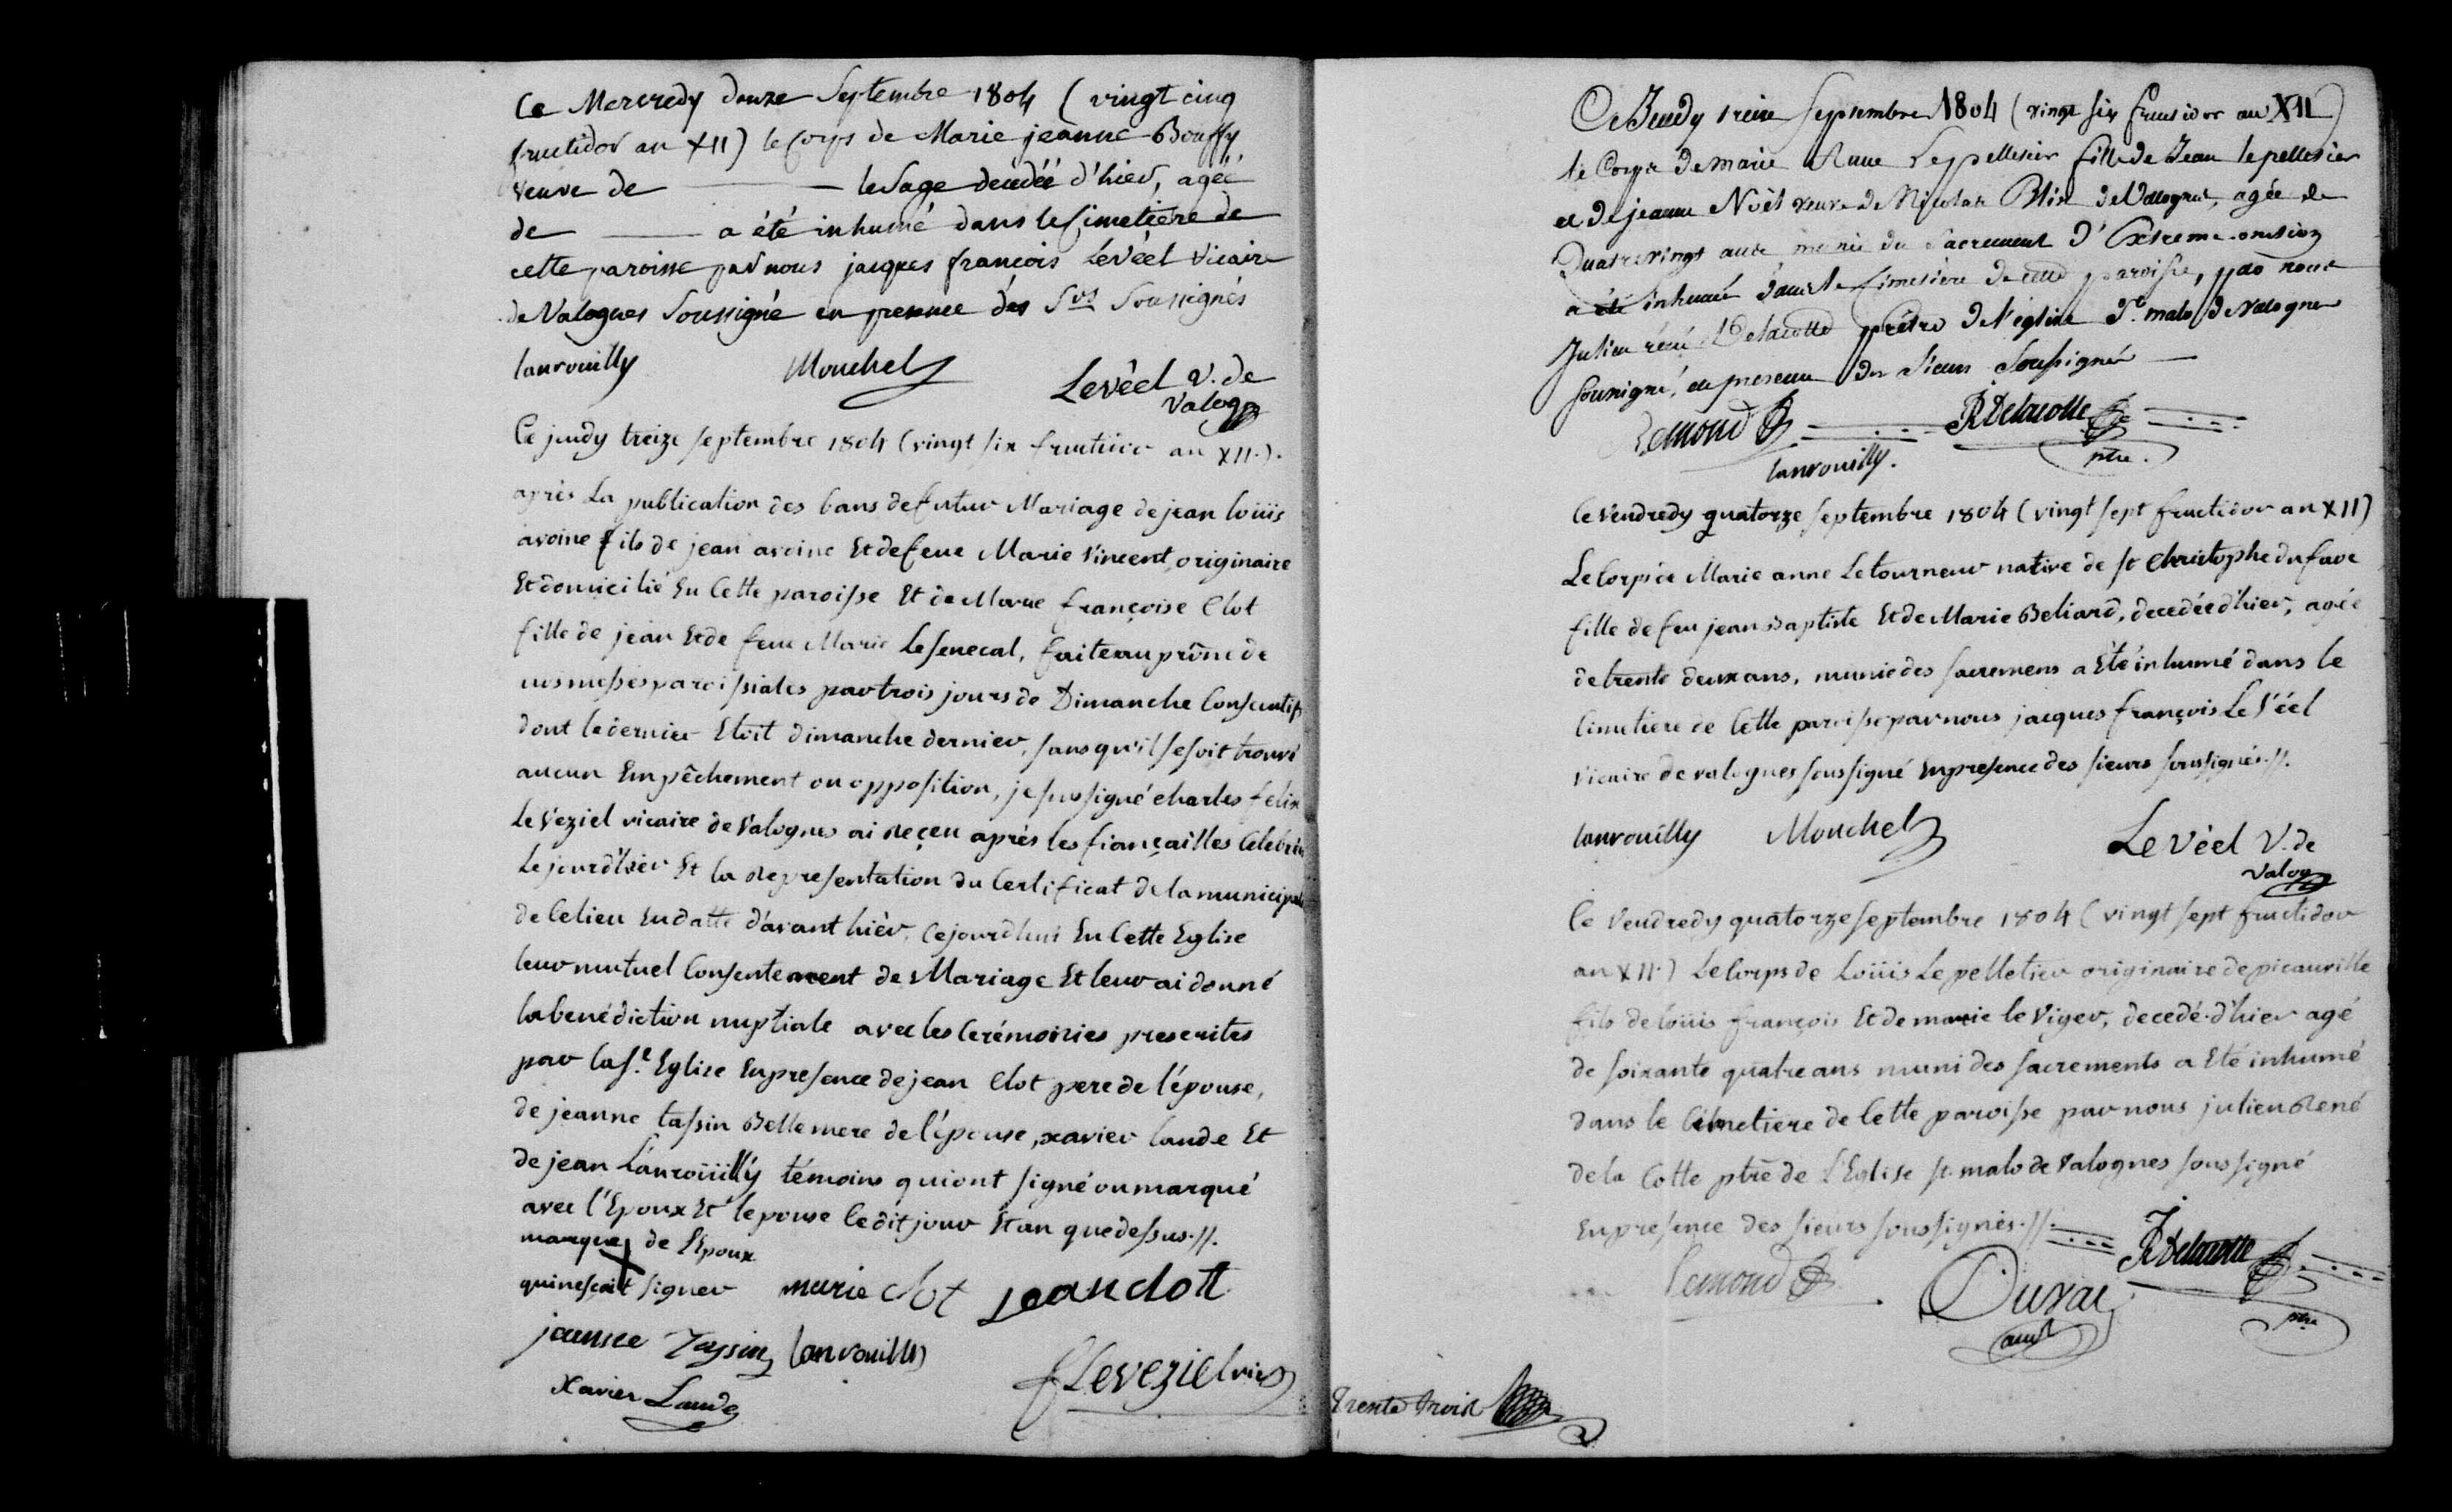 Ce Mercredy douze Septembre 1804 (vingt cinq
fructidor an XII) le corps de Marie jeanne Bouffy
veuve de ——— leSage décédée d'hier, agée
de ——— a été inhumé dans le Cimetiere de
cette paroisse par nous jacques françois LeVéel Vicaire
de Valognes Soussigné en presence des Srs Soussignés
lanrouilly Mouchel Levéel V. de
Valog
Ce jeudy treize septembre 1804 (vingt six fructidor an XII.).
après La publication des bans de futur Mariage de jean loüis
avoine fils de jean avoine Et de feue Marie Vincent, originaire
Et domicilié En Cette paroisse Et de Marie françoise Clot
fille de jean Et de feue Marie Lesenecal, faite au prône de
nos messes paroissiales par trois jours de Dimanche Consecutifs
dont le dernier Etoit dimanche dernier, sans qu'il se soit trouvé
aucun Empêchement ou opposition, je sussigné charles felix
Le Veziel vicaire de Valognes ai reçeu après les fiançailles Celebrées
Le jour d'hier Et la representation du Certificat de la municipalité
de Ce lieu En datte d'avant hièr, Ce jourdhui En Cette Eglise
leur mutuel Consentement de Mariage Et leur ai donné
la benédiction nuptiale avec les Cerémonies prescrites
par la Ste Eglise En presence de jean Clot pere de l'épouse,
de jeanne tassin Belle mere de l'épouse, xavier laude Et
de jean Lanroüilly témoins qui ont signé ou marqué
avec l'Epoux Et l'epouse le dit jour Et an que dessus.//.
marque de l'Epoux
qui ne scait signer marie clot jean clott
jeanne Tassin lanrouilly
xavier Laude f Leveziel vic
Ce Jeudy treize septembre 1804 (vingt six fructidor an XII)
le Corps de marie Anne Lepelletier fille de Jean lepelletier
et de jeanne Noël veuve de Nicolas Blin de Valognes, agée de
Quatre vingt ans, munie du Sacrement d'Extreme-onction
a été inhumé dans le Cimetière de cette paroisse, par nous
Julien réné Delacotte prêtre de l'église St. malo de Valognes
soussigné, en presence des Sieurs Soussignés —
Lemond JR Delacotte
lanrouilly. ptre.
Ce Vendredy quatorze septembre 1804 (vingt sept fructidor an XII)
Le Corps de Marie anne Letourneur native de st Christophe du foc
fille de feu jean Baptiste Et de Marie Beliard, decedée d'hier, agée
de trente deux ans, munie des sacremens a Eté inhumé dans le
Cimetiere de Cette paroisse par nous jacques françois Le Véel
Vicaire de valognes sous signé En presence des sieurs sous signés.//.
lanrouilly Mouchel LeVéel V. de
Valog
Ce Vendredy quatorze septembre 1804 (vingt sept fructidor
an XII.) Le Corps de Loüis Le pelletier originaire de picauville
fils de loüis françois Et de marie le Viger, decedé d'hier agé
de soixante quatre ans muni des sacrements a Eté inhumé
dans le Cimetiere de Cette paroisse par nous julien René
de la Cotte ptre de L'Eglise st. malo de Valognes sous signé
En presence des sieurs sous signés.//.
Lemond Duval JR Delacotte
ptre
trente trois